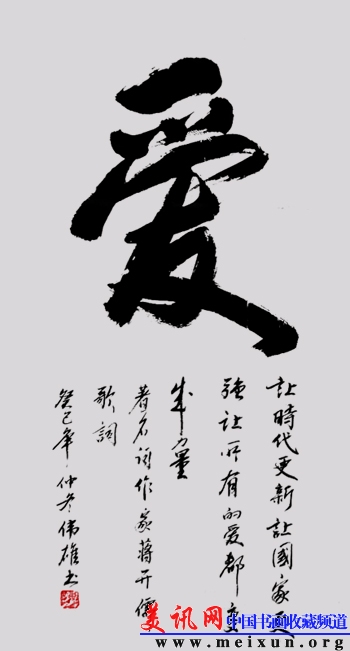 爱
让時代更新让國家更
强让所有的爱都变
成力量
著名词作家蒋开儒
歌詞
癸巳年·仲冬伟雄书
美讯网 中国书画收藏频道
www.meixun.org